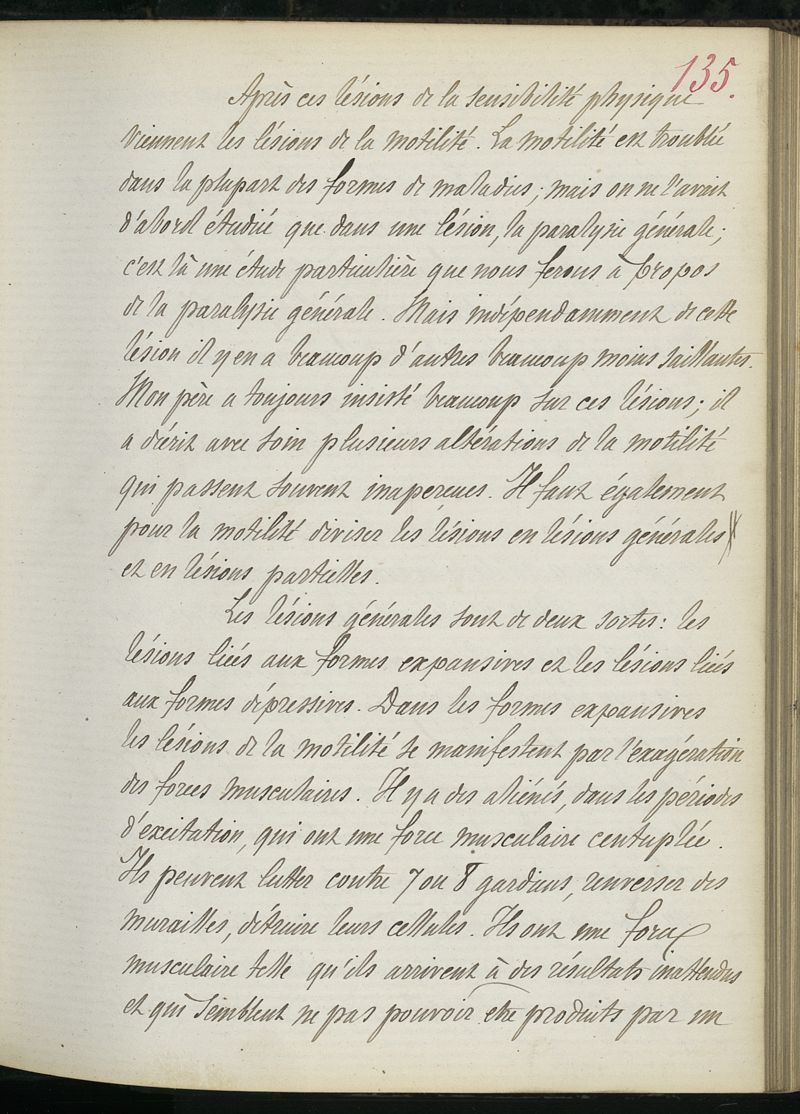 135.
Après ces lésions de la sensibilité physique
viennent les lésions de la motilité. La motilité est troublée
dans la plupart des formes de maladies; mais on ne l'avait
d'abord étudiée que dans une lésion, la paralysie générale;
c'est là une étude particulière que nous ferons à propos
de la paralysie générale. Mais indépendamment de cette
lésion il y en a beaucoup d'autres beaucoup moins saillantes.
Mon père a toujours insisté beaucoup sur ces lésions; il
a décrit avec soin plusieurs altérations de la motilité
qui passent souvent inaperçues. Il faut également
pour la motilité diviser les lésions en lésions générales
et en lésions partielles.
Les lésions générales sont de deux sortes: les
lésions liées aux formes expansives et les lésions liées
aux formes dépressives. Dans les formes expansives
les lésions de la motilité se manifestent par l'exagération
des forces musculaires. Il y a des aliénés, dans les périodes
d'excitation, qui ont une force musculaire centuplée.
Ils peuvent lutter contre 7 ou 8 gardiens, renverser des
murailles, détruire leurs cellules. Ils ont une force
musculaire telle qu'ils arrivent à des résultats inattendus
et qui semblent ne pas pouvoir etre produits par un